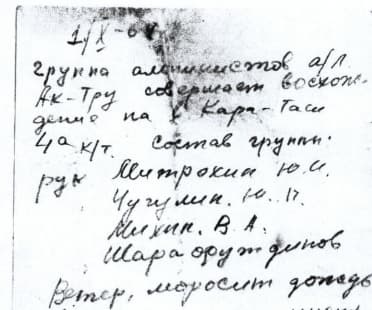 1/X-6
группа альпинистов а/л
Ак-Тру совершает восхож-
дение на в. Кара-Таш
4а к/т. Состав группы:
рук Митрохин Ю.И.
Чугулин. Ю. П.
Михин. В. А.
Шарафутдинов
Ветер, моросит дождь